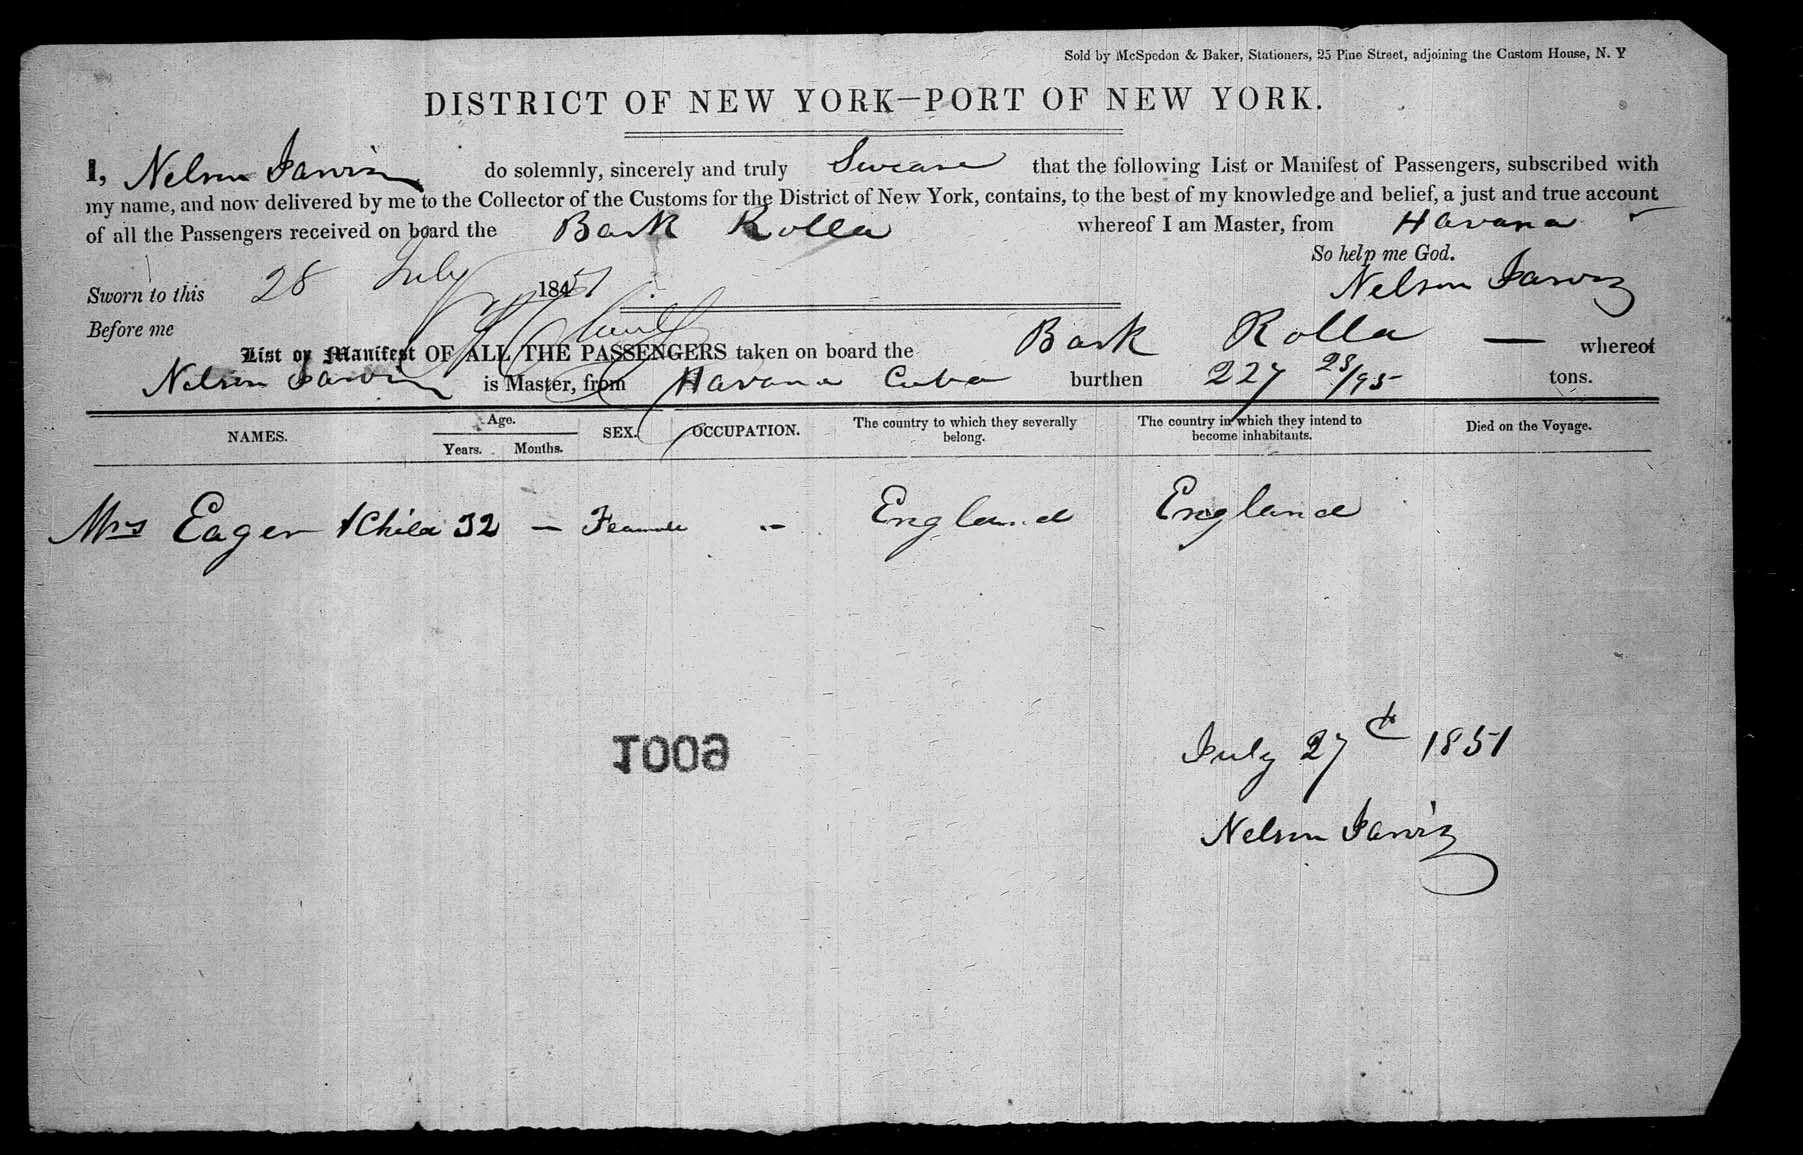 Sold by McSpedon & Baker, Stationers, 25 Pine Street, adjoining the Custom House, N. Y
DISTRICT OF NEW YORK—PORT OF NEW YORK.
I, Nelson Jarvis do solemnly, sincerely and truly Swear that the following List or Manifest of Passengers, subscribed with
my name, and now delivered by me to the Collector of the Customs for the District of New York, contains, to the best of my knowledge and belief, a just and true account
of all the Passengers received on board the Bark Rolla whereof I am Master, from Havana
So help me God.
Sworn to this 28 July 1851 Nelson Jarvis
Before me
List or Manifest OF ALL THE PASSENGERS taken on board the Bark Rolla — whereof
Nelson Jarvis is Master, from Havana Cuba burthen 227 23/95 tons.
NAMES. Age. Years. Months. SEX. OCCUPATION. The country to which they severally belong. The country in which they intend to become inhabitants. Died on the Voyage.
Mrs Eager & Child 32 — Feamale - England England
6001
July 27th 1851
Nelson Jarvis